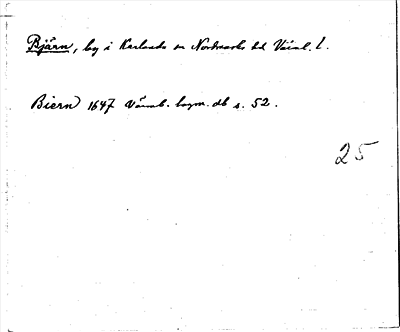 Bjärn, by i Karlanda sn Nordmarks hd Värml. l.
Biern 1647 Värml. bygm. db s. 52.
25